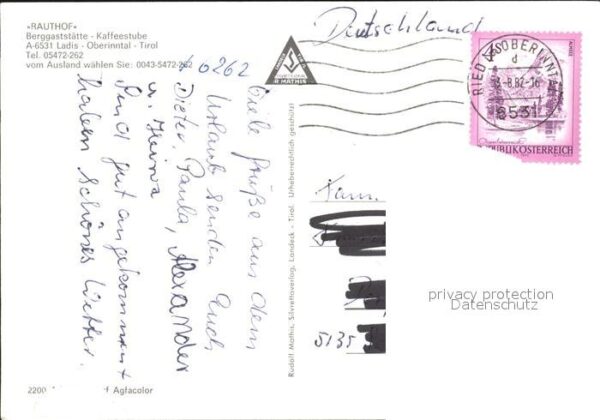 »RAUTHOF«
Berggaststätte - Kaffeestube
A-6531 Ladis - Oberinntal - Tirol
Tel. 05472-262
vom Ausland wählen Sie: 0043-5472-262
0262
Viele Grüße aus dem
Urlaub senden Euch
Dieter, Paula, Alexander
u. Heina
Sind gut angekommen
haben schönes Wetter.
2200
Agfacolor
R MATHIS
Rudolf Mathis, Silvrettaverlag, Landeck - Tirol. Urheberrechtlich geschützt
Deutschland
RIED OBERINNTAL
d
-8.82-16
6531
REPUBLIK ÖSTERREICH
Fam.
5135
privacy protection
Datenschutz